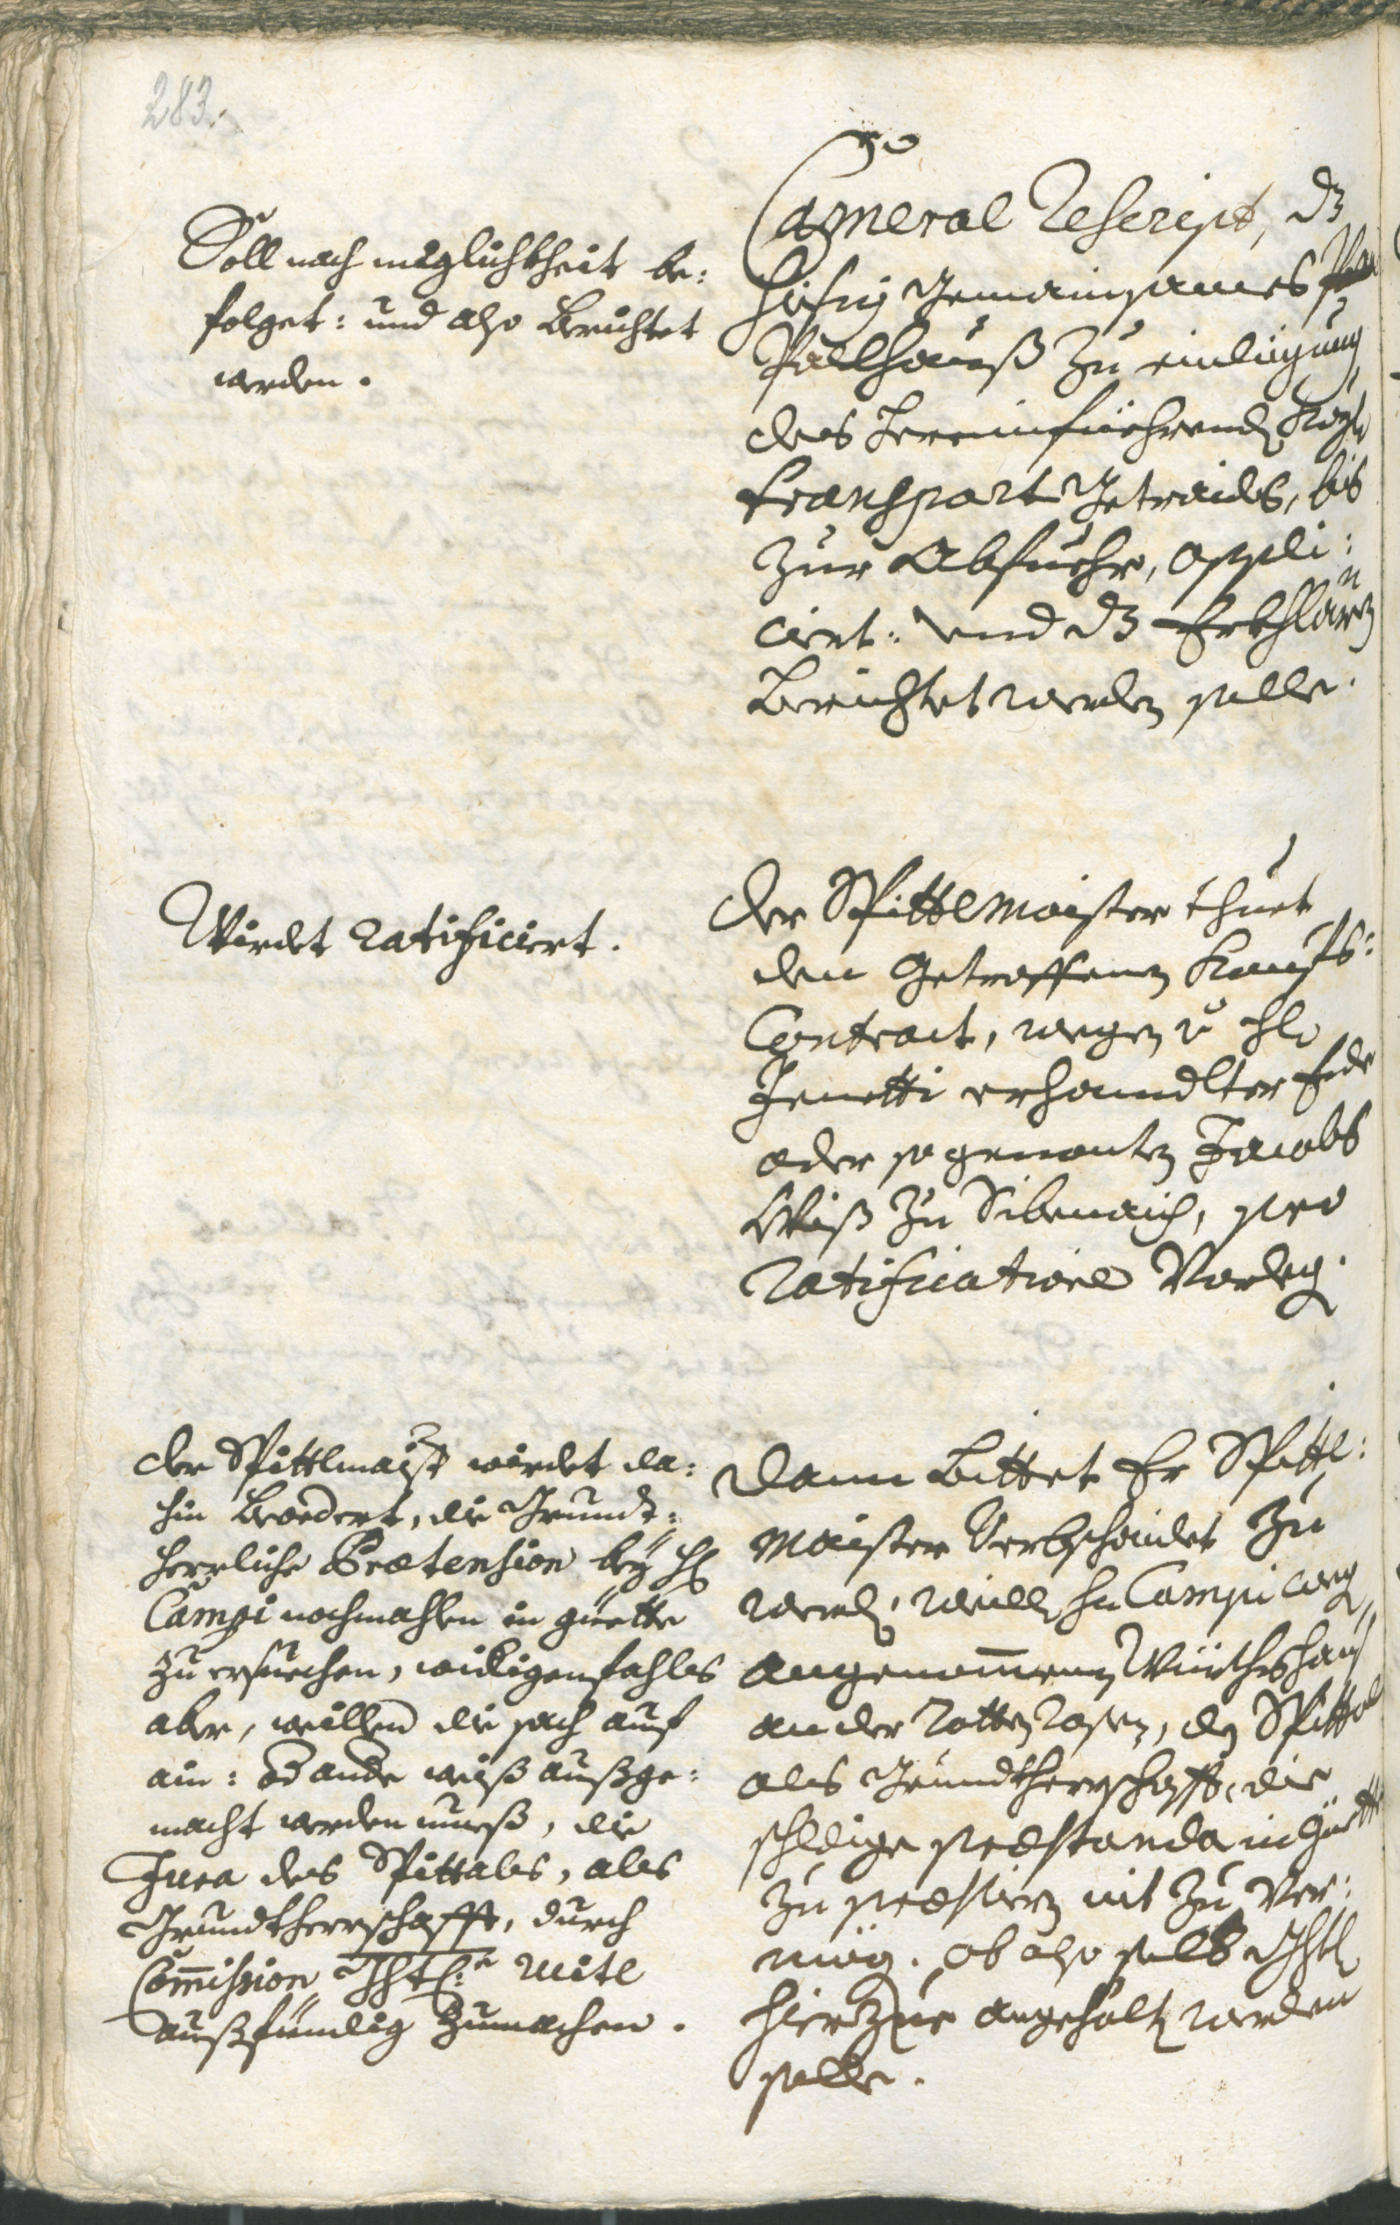 283.
Soll nach möglichkheit be:
folget: und also Berichtet
werden.
Cameral Rescript, dz
hiesig Gemainsames
Pallhauß zu einlegung
des hereinfüehrend Kays
transport Getraids, bis
zur Abfuehr, appli:
ciert: und dz Erkhlärn
Berichtet werden solle.
Wirdet ratificiert.
Der Spittlmaister thuet
den Getroffenen Kaufs:
Contract, wegen v H
Jenetti erhandlter
oder sogenanten Jacobs
Wiß zu Sibenaich, pro
ratificatione Vorleg.
Der Spittlmaistr wirdet da:
hin Beordert, die Grundt:
herrliche Praetension bey H
Campi nochmahlen in güette
zu ersuechen, widrigenfahles
aber, weillen die sach auf
ain: od ander weiß außge:
macht werden mueß, die
Jura des Spittales, als
Grundtherrschafft, durch
Commission
außfündig zumachen.
Dann Bittet Er Spittl:
maister Verbschaidet zu
werd, weill H Campi weg
angenommenen Würthshauß
an der Rotten Rosen, dem Spittal
als Grundtherrschafft, die
schuldige praestanda in Güette
zu praestiern nit zu Ver:
mög. ob also selbe
hierzue angehalt werden
solle.